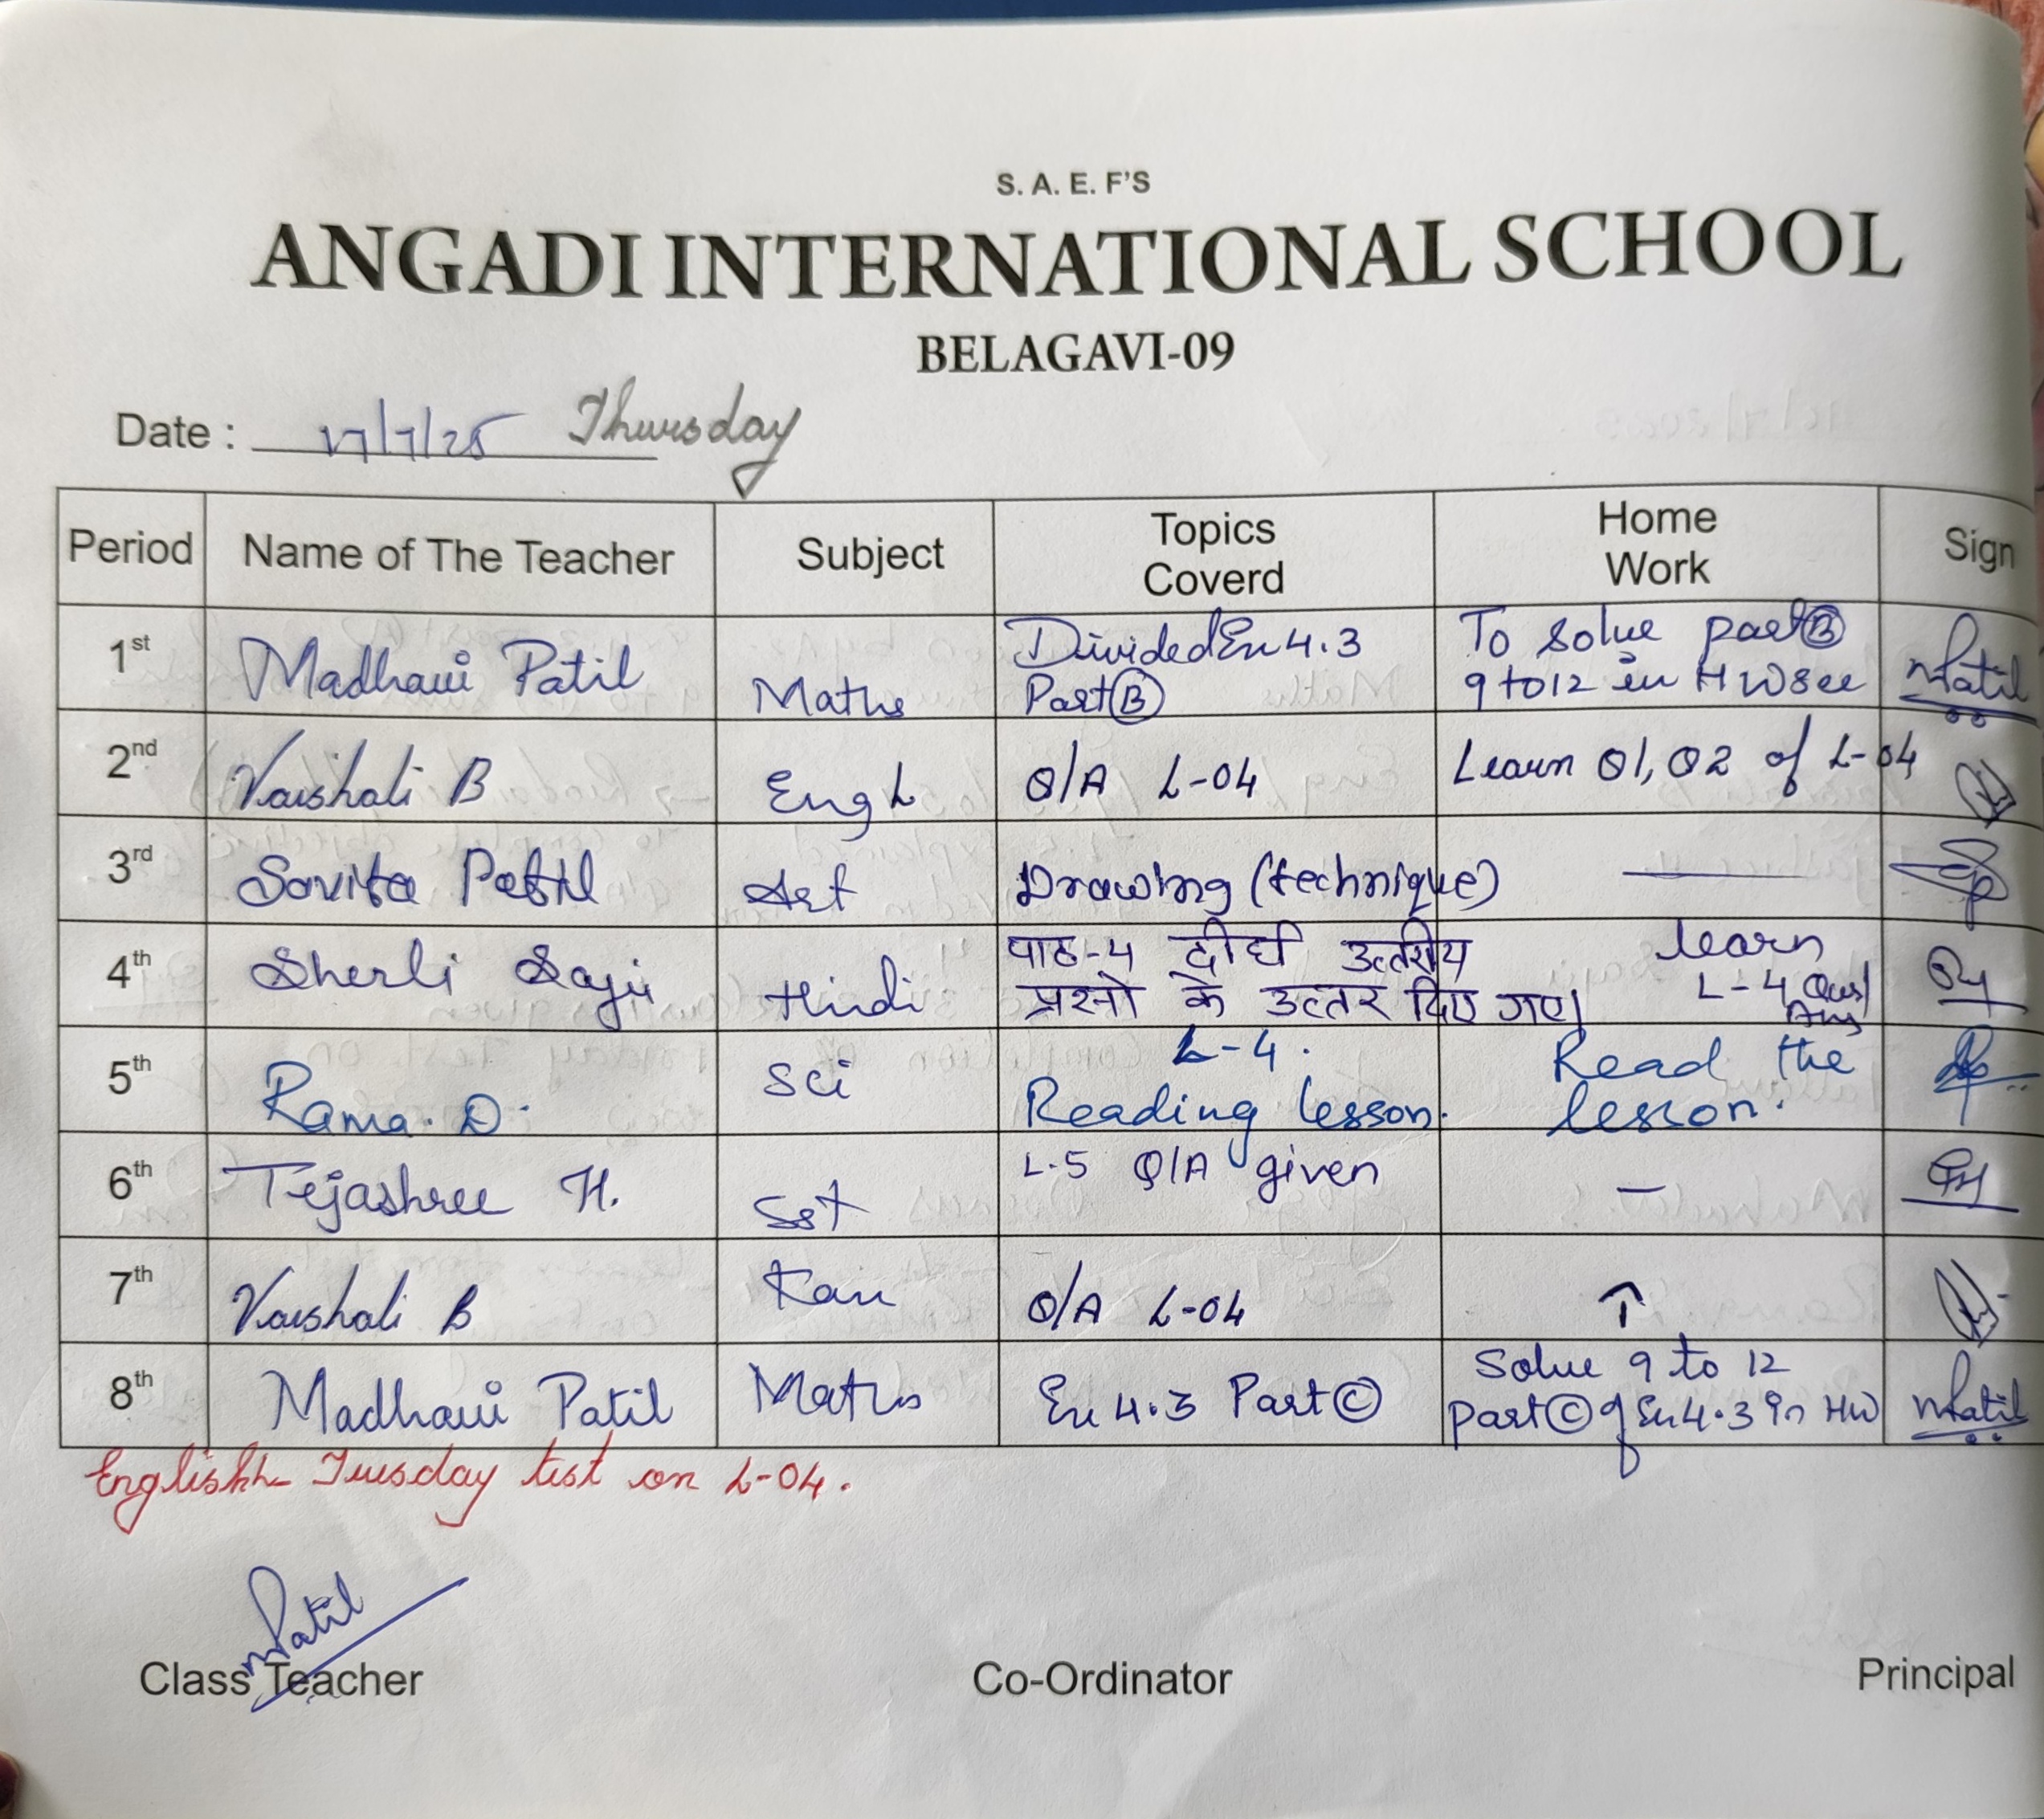 S. A. E. F'S
ANGADI INTERNATIONAL SCHOOL
BELAGAVI-09
Date : 17/7/25 Thursday
Period Name of The Teacher Subject Topics Coverd Home Work Sign
1st Madhavi Patil Maths Divided Ex 4.3 Part Ⓑ To solve part Ⓑ 9 to 12 in HW MPatil
2nd Vaishali B Eng L Q/A L-04 Learn Q1, Q2 of L-04
3rd Savita Patil Art Drawing (technique) —
4th Sherli Saju Hindi पाठ-4 दीर्घ उत्तरीय प्रश्नो के उत्तर दिए गए। learn L-4 Ques/Ans
5th Rama. D. Sci L-4. Reading lesson. Read the lesson.
6th Tejashree H. Sst L.5 Q/A given —
7th Vaishali B Kan Q/A L-04 ↑
8th Madhavi Patil Maths Ex 4.3 Part Ⓒ Solve 9 to 12 part Ⓒ of Ex 4.3 in HW MPatil
English Tuesday test on L-04.
MPatil
Class Teacher Co-Ordinator Principal